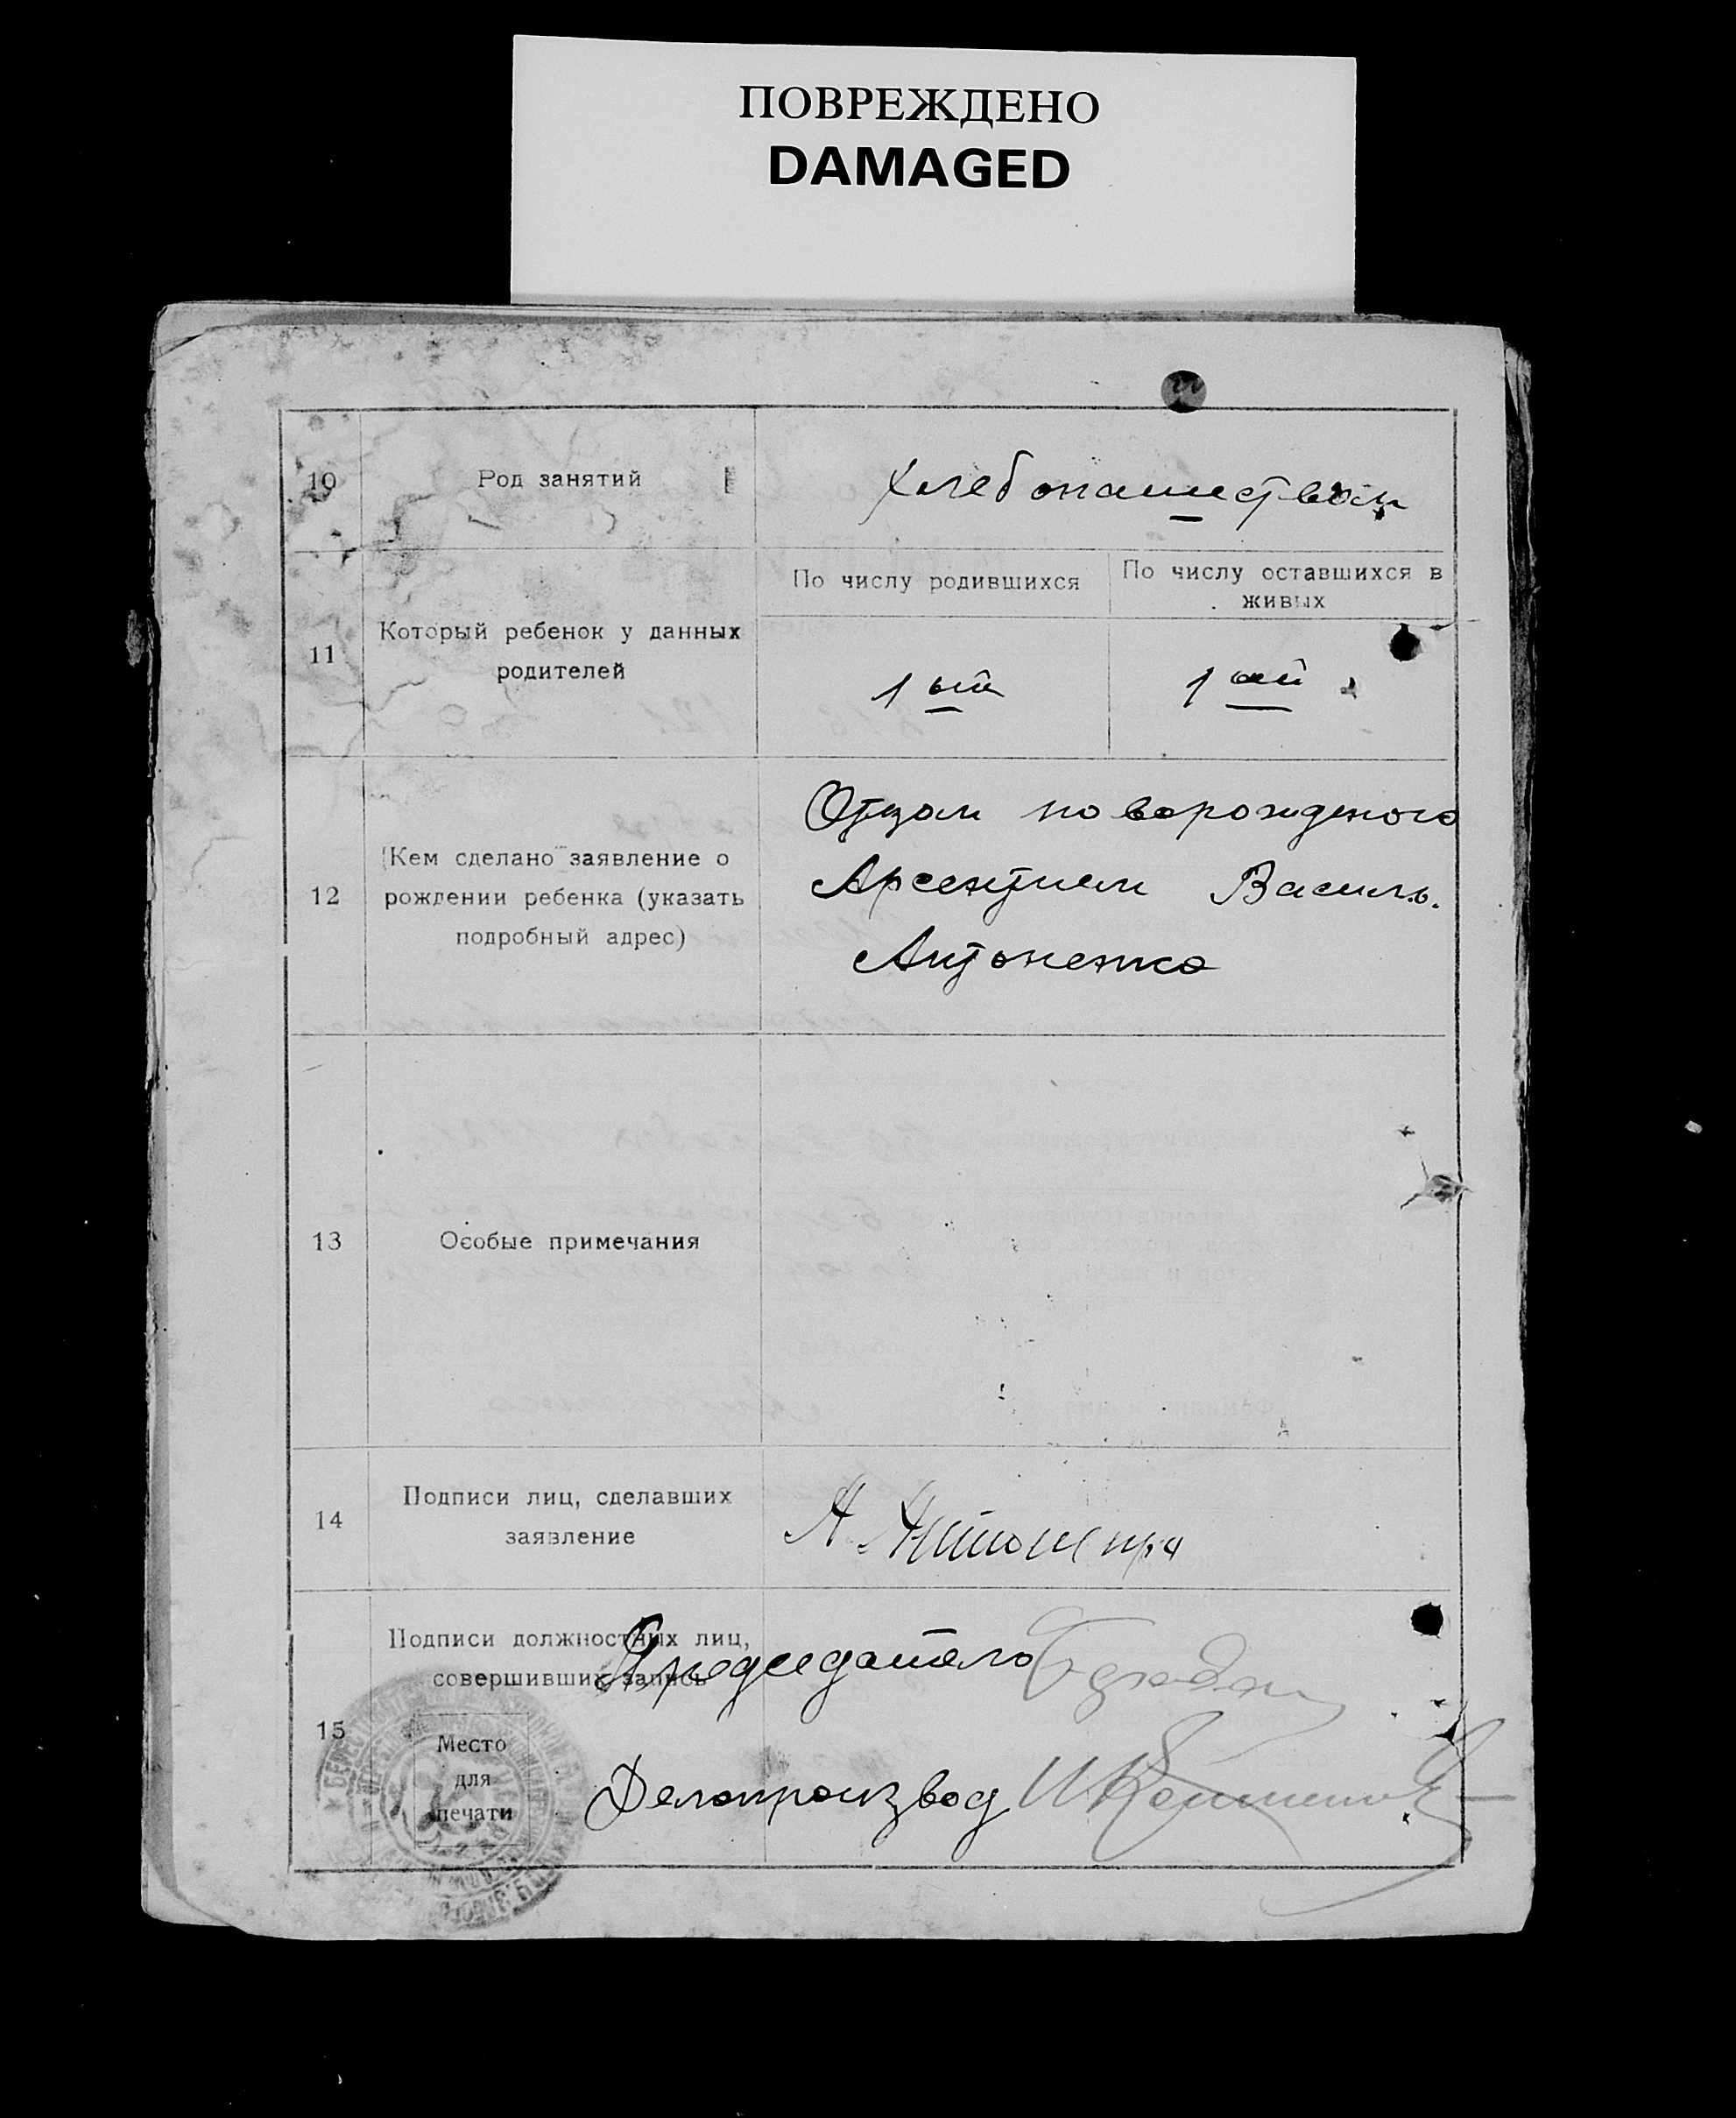 ПОВРЕЖДЕНО
DAMAGED
10
Род занятий
Хлебопашеством
11
Который ребенок у данных
родителей
По числу родившихся
По числу оставшихся в
живых
1 ый
1 ый
12
(Кем сделано заявление о
рождении ребенка (указать
подробный адрес)
Отцом новорожденого
Арсентием Василь.
Антоненко
13
Особые примечания
14
Подписи лиц, сделавших
заявление
А. Антоненко
15
Подписи должностных лиц,
совершивших запись
Председатель
Место
для
печати
Делопроизвод